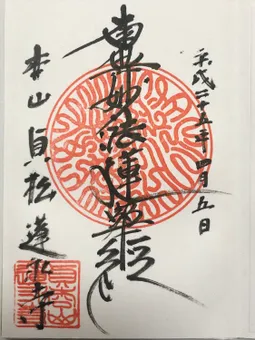 平成二十五年四月五日
南無妙法蓮華経
本山 貞松 蓮永寺